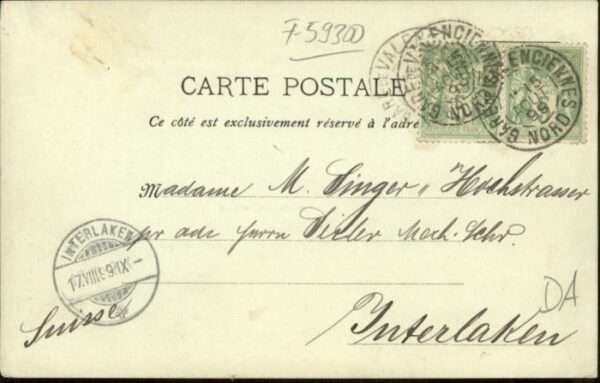 F59300
CARTE POSTALE
Ce côté est exclusivement réservé à l'adre
GARE DE VALENCIENNES NORD
GARE VALENCIENNES NORD
Madame M. Singer-Hochstrasser
pr adr Herrn Mech. Schr.
INTERLAKEN
17.VIII.9 IX-
DA
Suisse
Interlaken